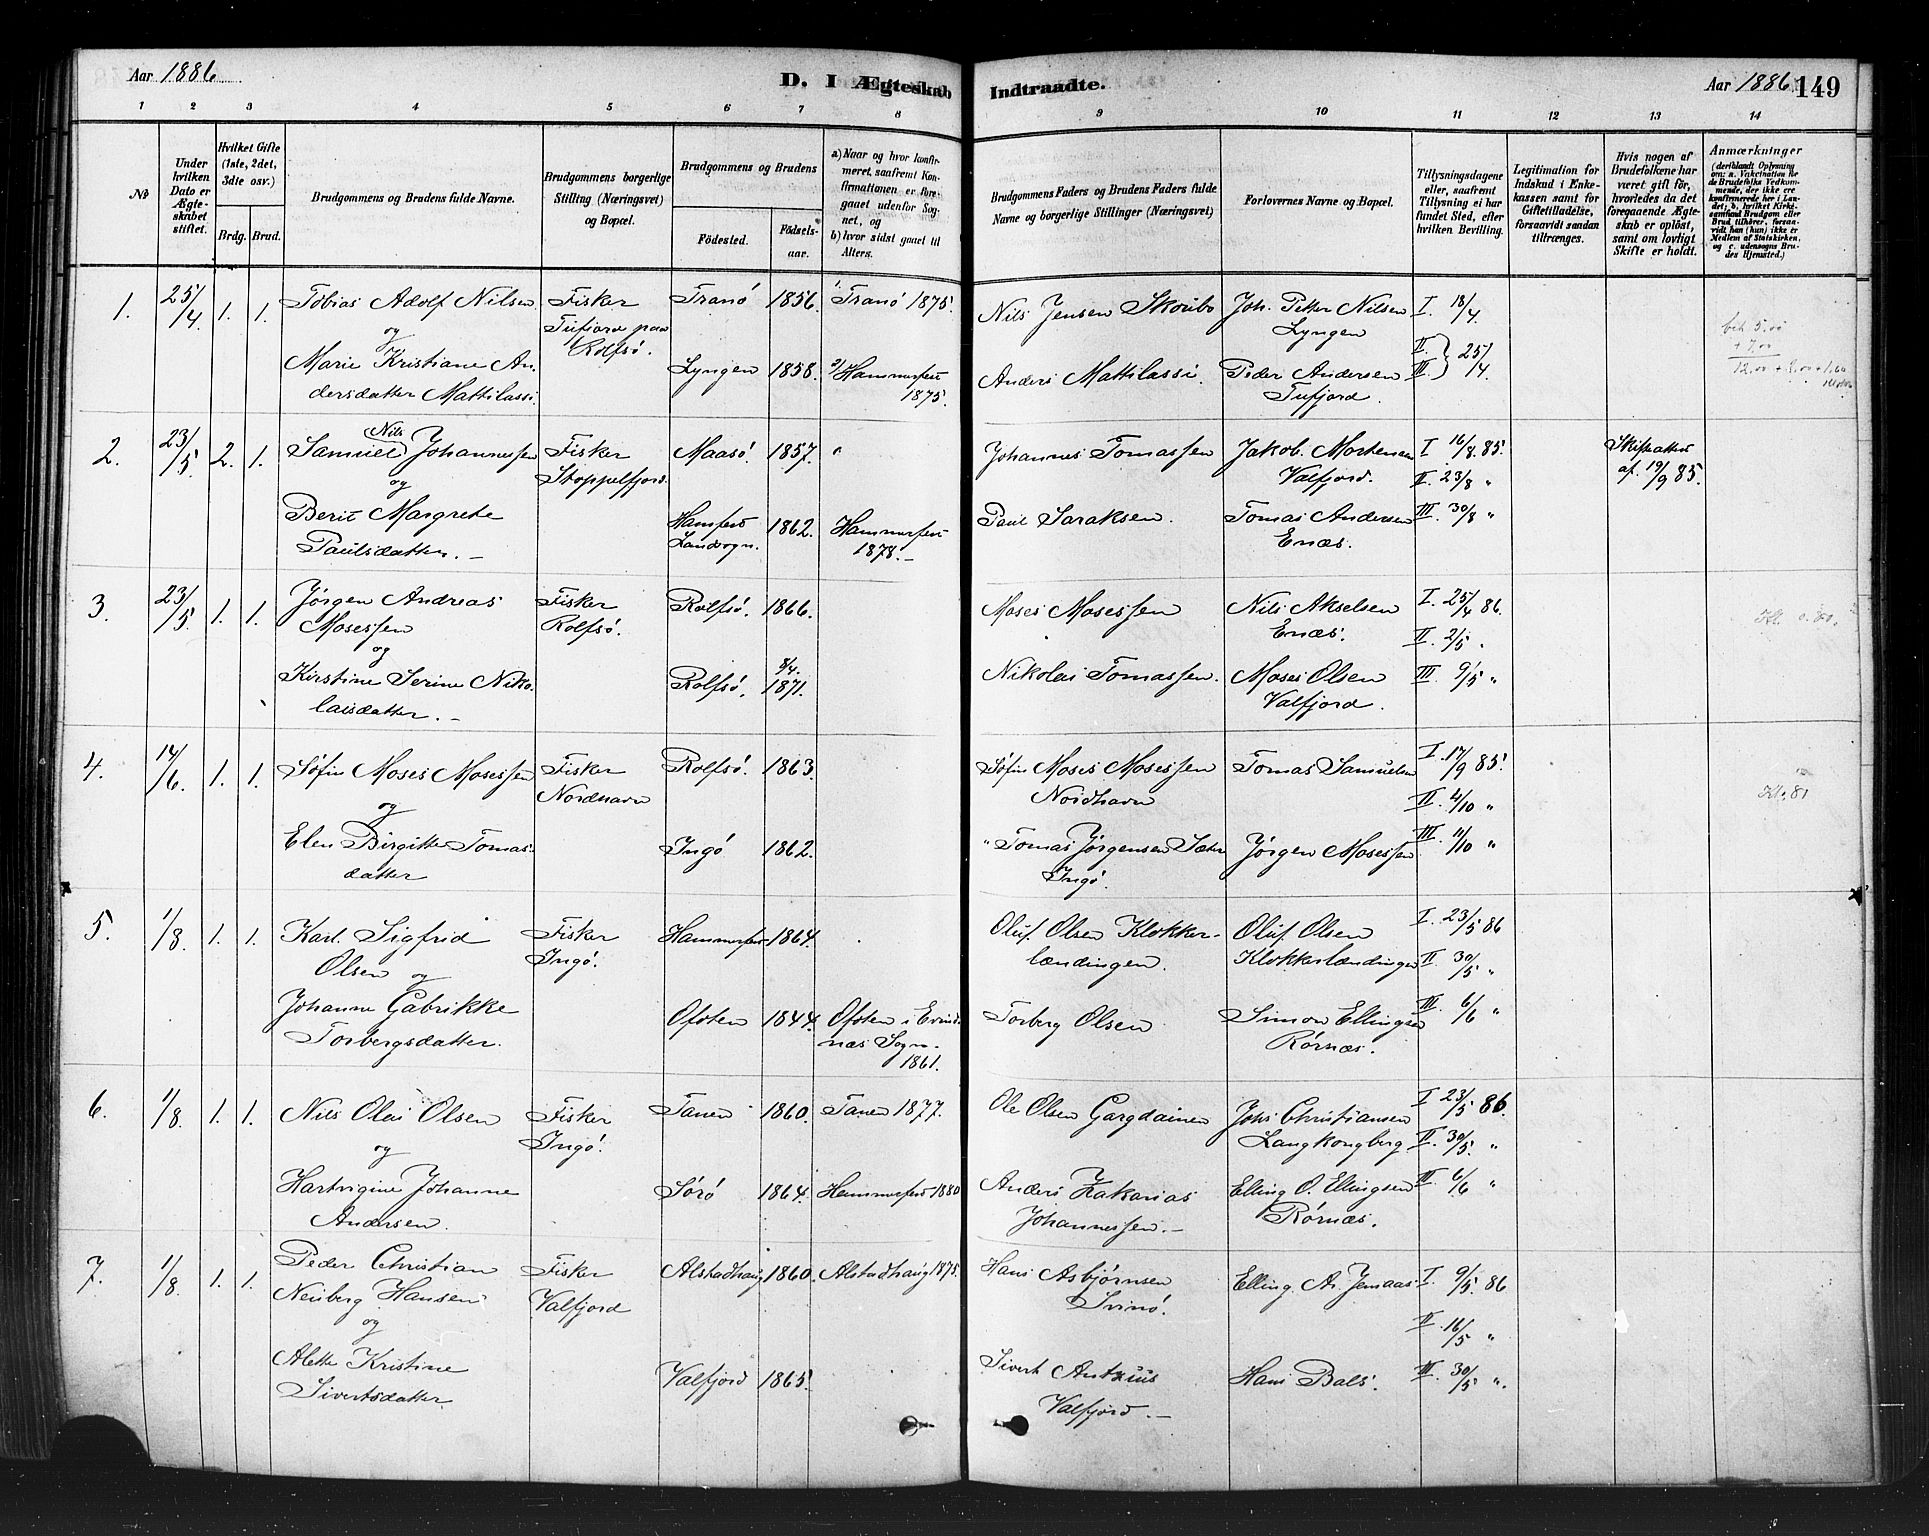 Aar 1886
D. I Ægteskab Indtraadte.
Aar 1886 149
1 2 3 4 5 6 7 8 9 10 11 12 13 14
No
Under hvilken Dato er Ægteskabet stiftet.
Hvilket Gifte (1ste, 2det, 3die osv.)
Brdg. Brud.
Brudgommens og Brudens fulde Navne.
Brudgommens borgerlige Stilling (Næringsvet) og Bopæl.
Brudgommens og Brudens
Fødested. Fødselsaar.
a) Naar og hvor konfirmeret, saafremt Konfirmationen er foregaaet udenfor Sognet, og
b) hvor sidst gaaet til Alters.
Brudgommens Faders og Brudens Faders fulde Navne og borgerlige Stillinger (Næringsvet)
Forlovernes Navne og Bopæl.
Tillysningsdagene eller, saafremt Tillysning ei har fundet Sted, efter hvilken Bevilling.
Legitimation for Indskud i Enkekassen samt for Giftetilladelse, forsaavidt saadan tiltrænges.
Hvis nogen af Brudefolkene har været gift før, hvorledes da det foregaaende Ægteskab er opløst, samt om lovligt Skifte er holdt.
Anmærkninger
(deriblandt Oplysning om: a. Vakcination for de Brudefolks Vedkommende, der ikke ere konfirmerede her i Landet; b. hvilket Kirkesamfund Brudgom eller Brud tilhører, forsaavidt han (hun) ikke er Medlem af Statskirken, og c. udensogns Brudes Hjemsted.)
1. 25/4 1. 1. Tobias Adolf Nilsen Fisker Tranö 1856. 1/ Tranö 1875. Nils Jensen Skoubo Joh. Petter Nilsen I 18/4
og Tufjord paa Lyngen
Rolfsö.
Marie Kristiane An- Lyngen 1858. 2/ Hammerfest Anders Mattilassi. Peder Andersen II III } 25/4
dersdatter Mattilassi. 1875. Tufjord.
2. 23/5 2. 1. Samuel Nils Johannessen Fisker Maasö. 1857. " Johannes Tomassen Jakob Mortensen I 16/8 85. Skifteattest
og Stoppelfjord. Valfjord. II. 23/8 " af. 19/9 85.
Berit Margrete Hamfest 1862. Hammerfest Paul Saraksen. Tomas Andersen III. 30/8 "
Paulsdatter. - Landsogn. 1878. - Enæs.
3. 23/5 1. 1. Jörgen Andreas Fisker Rolfsö. 1866. Moses Mosessen Nils Akselsen I. 25/4 86. Kl. 0.80.
Mosessen Rolfsö. Enæs. II 2/5 "
og
Kirstine Serine Niko- Rolfsö. 8/4. 1871. Nikolai Tomassen. Moses Olsen III 9/5 "
laisdatter. - Valfjord.
4. 14/6 1. 1. Söfin Moses Mosessen Fisker Rolfsö. 1863. Söfin Moses Mosessen Tomas Samuelsen I 17/9 85.
og Nordhavn Nordhavn II 4/10 "
Elen Birgitte Tomas- Ingö 1862. " Tomas Jörgensen Jörgen Mosessen III 11/10 "
datter Ingö.
5. 1/8 1. 1. Karl Sigfrid Fisker Hammerfest 1864. Oluf Olsen Klokker- Oluf Olsen I. 23/5 86
Olsen og Ingö. lændingen. Klokkerlændingen II 30/5 "
Johanne Gabrikke Ofoten 1844. Ofoten i Evind- Torberg Olsen Simon Ellingsen III 6/6 "
Torbergsdatter. næs Sogn. Rörnæs.
1861.
6. 1/8 1. 1. Nils Olai Olsen Fisker Tanen 1860. Tanen 1877. Ole Olsen Gargdainen Johs Christiansen I 23/5 86.
og Ingö. Langkongberg II. 30/5. "
Hartvigine Johanne Sörö 1864. Hammerfest 1880 Anders Zakarias Elling O. Ellingsen III 6/6 "
Andersen. Johannessen. - Rörnæs.
7. 1/8 1. 1. Peder Christian Fisker Alstadhaug 1860. Alstadhaug 1875. Hans Asbjørnsen Elling Ar. Jemaas I. 9/5. 86
Neuberg Hansen Valfjord Svinö.
og II 16/5 "
Alette Kristine Valfjord 1865. Sivert Antzius Hans Bals. III. 30/5 ".
Sivertsdatter Valfjord. -